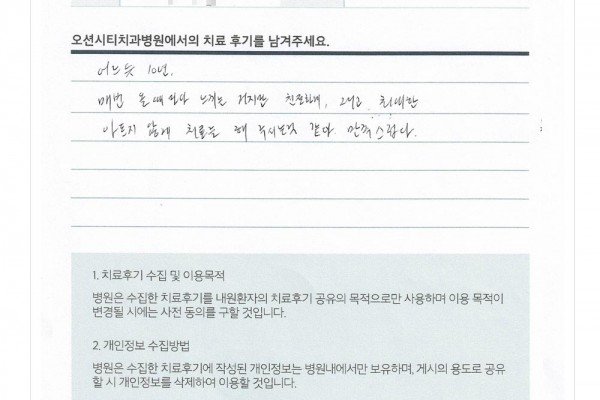 오션시티치과병원에서의 치료 후기를 남겨주세요.
어느 듯 10년.
매번 올때 마다 느끼는 거지만 친절하게, 그리고 최대한
아프지 않게 치료를 해 주시는것 같다. 만족스럽다.
1. 치료후기 수집 및 이용목적
병원은 수집한 치료후기를 내원환자의 치료후기 공유의 목적으로만 사용하며 이용 목적이
변경될 시에는 사전 동의를 구할 것입니다.
2. 개인정보 수집방법
병원은 수집한 치료후기에 작성된 개인정보는 병원내에서만 보유하며, 게시의 용도로 공유
할 시 개인정보를 삭제하여 이용할 것입니다.